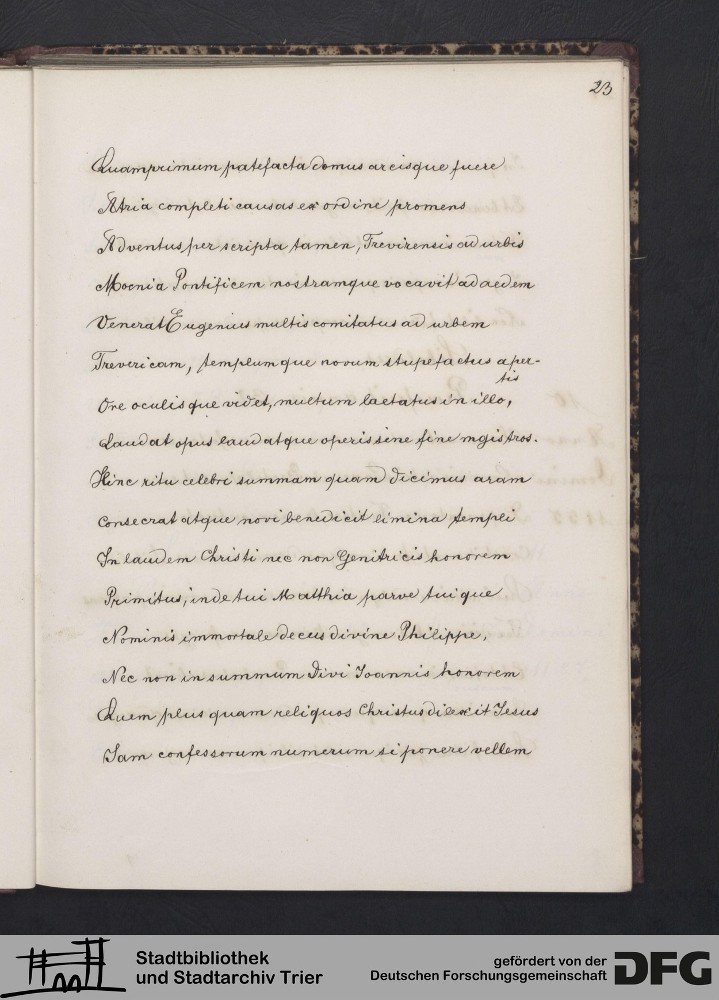 23
Quamprimum patefacta domus arcisque fuere
Atria completi causas ex ordine promens
Adventus per scripta tamen, Trevirensis ad urbis
Moenia Pontificem nostramque vocavit ad aedem
Venerat Eugenius multis comitatus ad urbem
Trevericam, templumque novum stupefactus aper-
tis
Ore oculisque videt, multum laetatus in illo,
Laudat opus laudatque operis sine fine mgistros.
Hinc ritu celebri summam quam dicimus aram
Consecrat atque novi benedicit limina templi
In laudem Christi nec non Genitricis honorem
Primitus, inde tui Matthia parve tuique
Nominis immortale decus divine Philippe,
Nec non in summum Divi Joannis honorem
Quem plus quam reliquos Christus dilexit Jesus
Jam confessorum numerum si ponere vellem
Stadtbibliothek
und Stadtarchiv Trier
gefördert von der
Deutschen Forschungsgemeinschaft
DFG